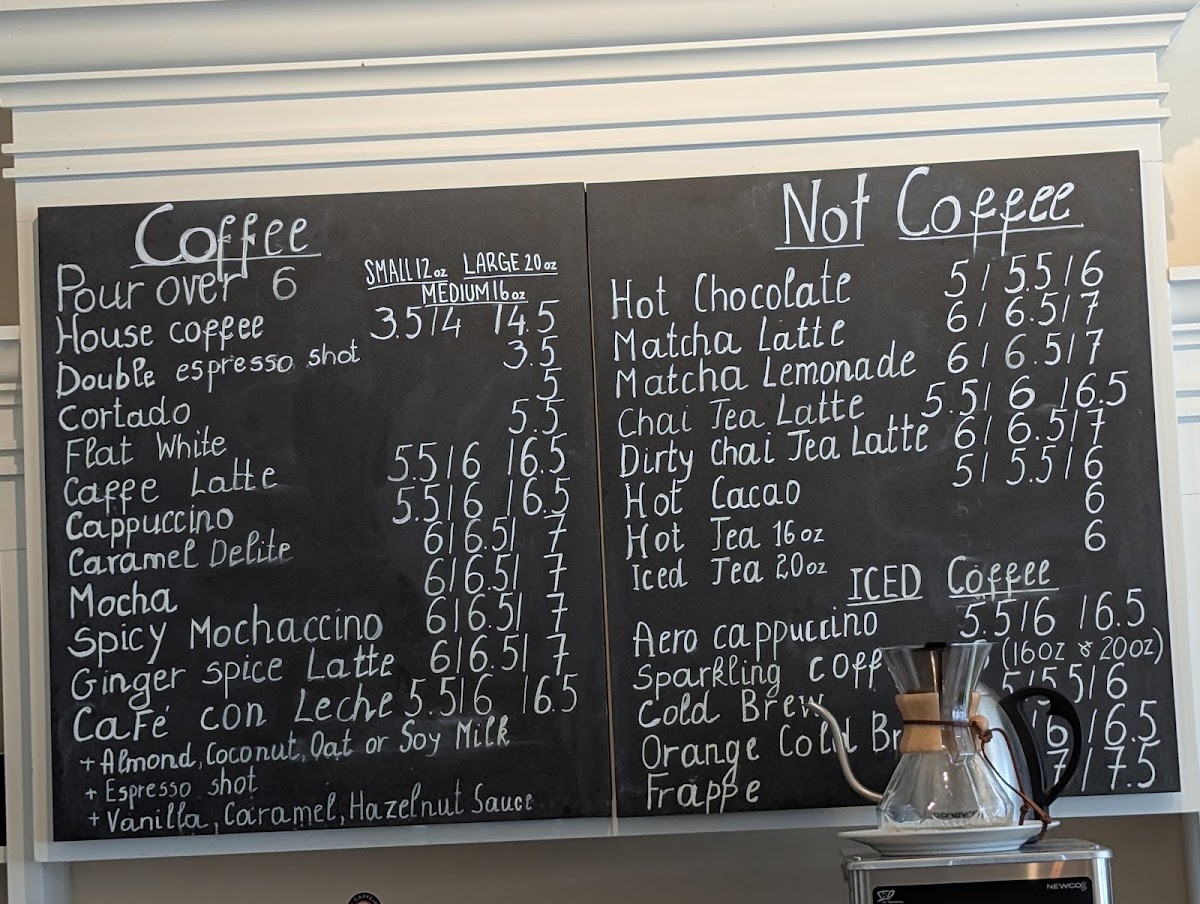 Coffee
SMALL 12 oz LARGE 20 oz
MEDIUM 16 oz
Pour over 6
House coffee 3.5 / 4 / 4.5
Double espresso shot 3.5
Cortado 5
Flat White 5.5
Caffe Latte 5.5 / 6 / 6.5
Cappuccino 5.5 / 6 / 6.5
Caramel Delite 6 / 6.5 / 7
Mocha 6 / 6.5 / 7
Spicy Mochaccino 6 / 6.5 / 7
Ginger spice Latte 6 / 6.5 / 7
Café con Leche 5.5 / 6 / 6.5
+ Almond, Coconut, Oat or Soy Milk
+ Espresso shot
+ Vanilla, Caramel, Hazelnut Sauce
Not Coffee
Hot Chocolate 5 / 5.5 / 6
Matcha Latte 6 / 6.5 / 7
Matcha Lemonade 6 / 6.5 / 7
Chai Tea Latte 5.5 / 6 / 6.5
Dirty Chai Tea Latte 6 / 6.5 / 7
Hot Cacao 5 / 5.5 / 6
Hot Tea 16 oz 6
Iced Tea 20 oz 6
ICED Coffee
Aero cappuccino 5.5 / 6 / 6.5
Sparkling (16oz & 20oz)
Cold Brew 5 / 5.5 / 6
Orange Cold 6 / 6.5
Frappe 7 / 7.5
NEWCO